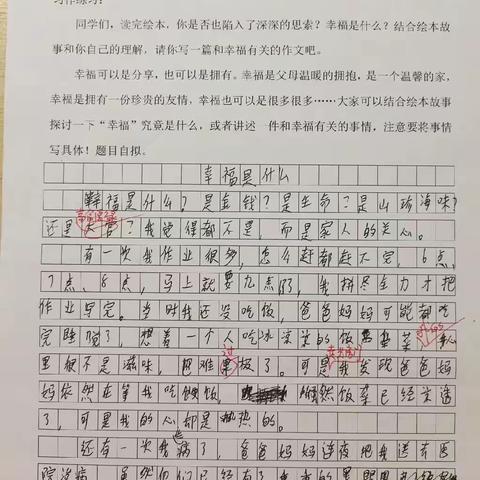 习作练习:
同学们，读完绘本，你是否也陷入了深深的思索？幸福是什么？结合绘本故
事和你自己的理解，请你写一篇和幸福有关的作文吧。
幸福可以是分享，也可以是拥有。幸福是父母温暖的拥抱，是一个温馨的家，
幸福是拥有一份珍贵的友情，幸福也可以是很多很多……大家可以结合绘本故事
探讨一下“幸福”究竟是什么，或者讲述一件和幸福有关的事情，注意要将事情
写具体！题目自拟。
幸福是什么
福是什么？是金钱？是生命？是山珍海味？
还是？我觉得都不是，而是家人的关心。
有一次我作业很多，怎么赶都赶不完，6点、
7点、8点，马上就要九点了，我拼尽全力才把
作业写完。当时我还没吃饭，爸爸妈妈可能都吃
完睡觉了，想着一个人吃冰凉的饭菜，心
里很不是滋味，极了。可是我发现爸爸妈
妈依然在等我吃饭，虽然饭菜已经凉透
了，可是我的心却是热的。
还有一次我病了，爸爸妈妈连夜把我送去医
院治病，虽然他们已经有了